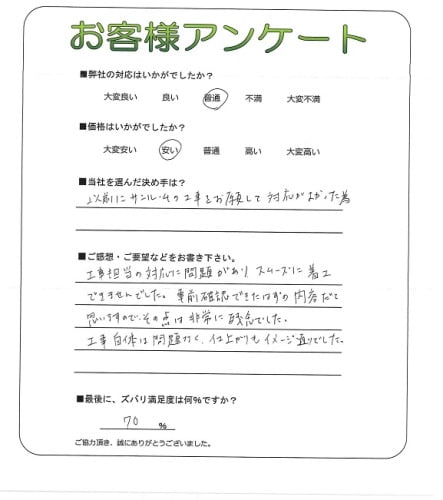 お客様アンケート
■弊社の対応はいかがでしたか？
大変良い 良い 普通 不満 大変不満
■価格はいかがでしたか？
大変安い 安い 普通 高い 大変高い
■当社を選んだ決め手は？
以前にサンルームの工事をお願して対応がよかった為
■ご感想・ご要望などをお書き下さい。
工事担当の対応に問題があり スムーズに着工
できませんでした。事前確認できたはずの内容だと
思いますので、その点は非常に残念でした。
工事自体は問題なく、仕上がりもイメージ通りでした。
■最後に、ズバリ満足度は何％ですか？
70 ％
ご協力頂き、誠にありがとうございました。